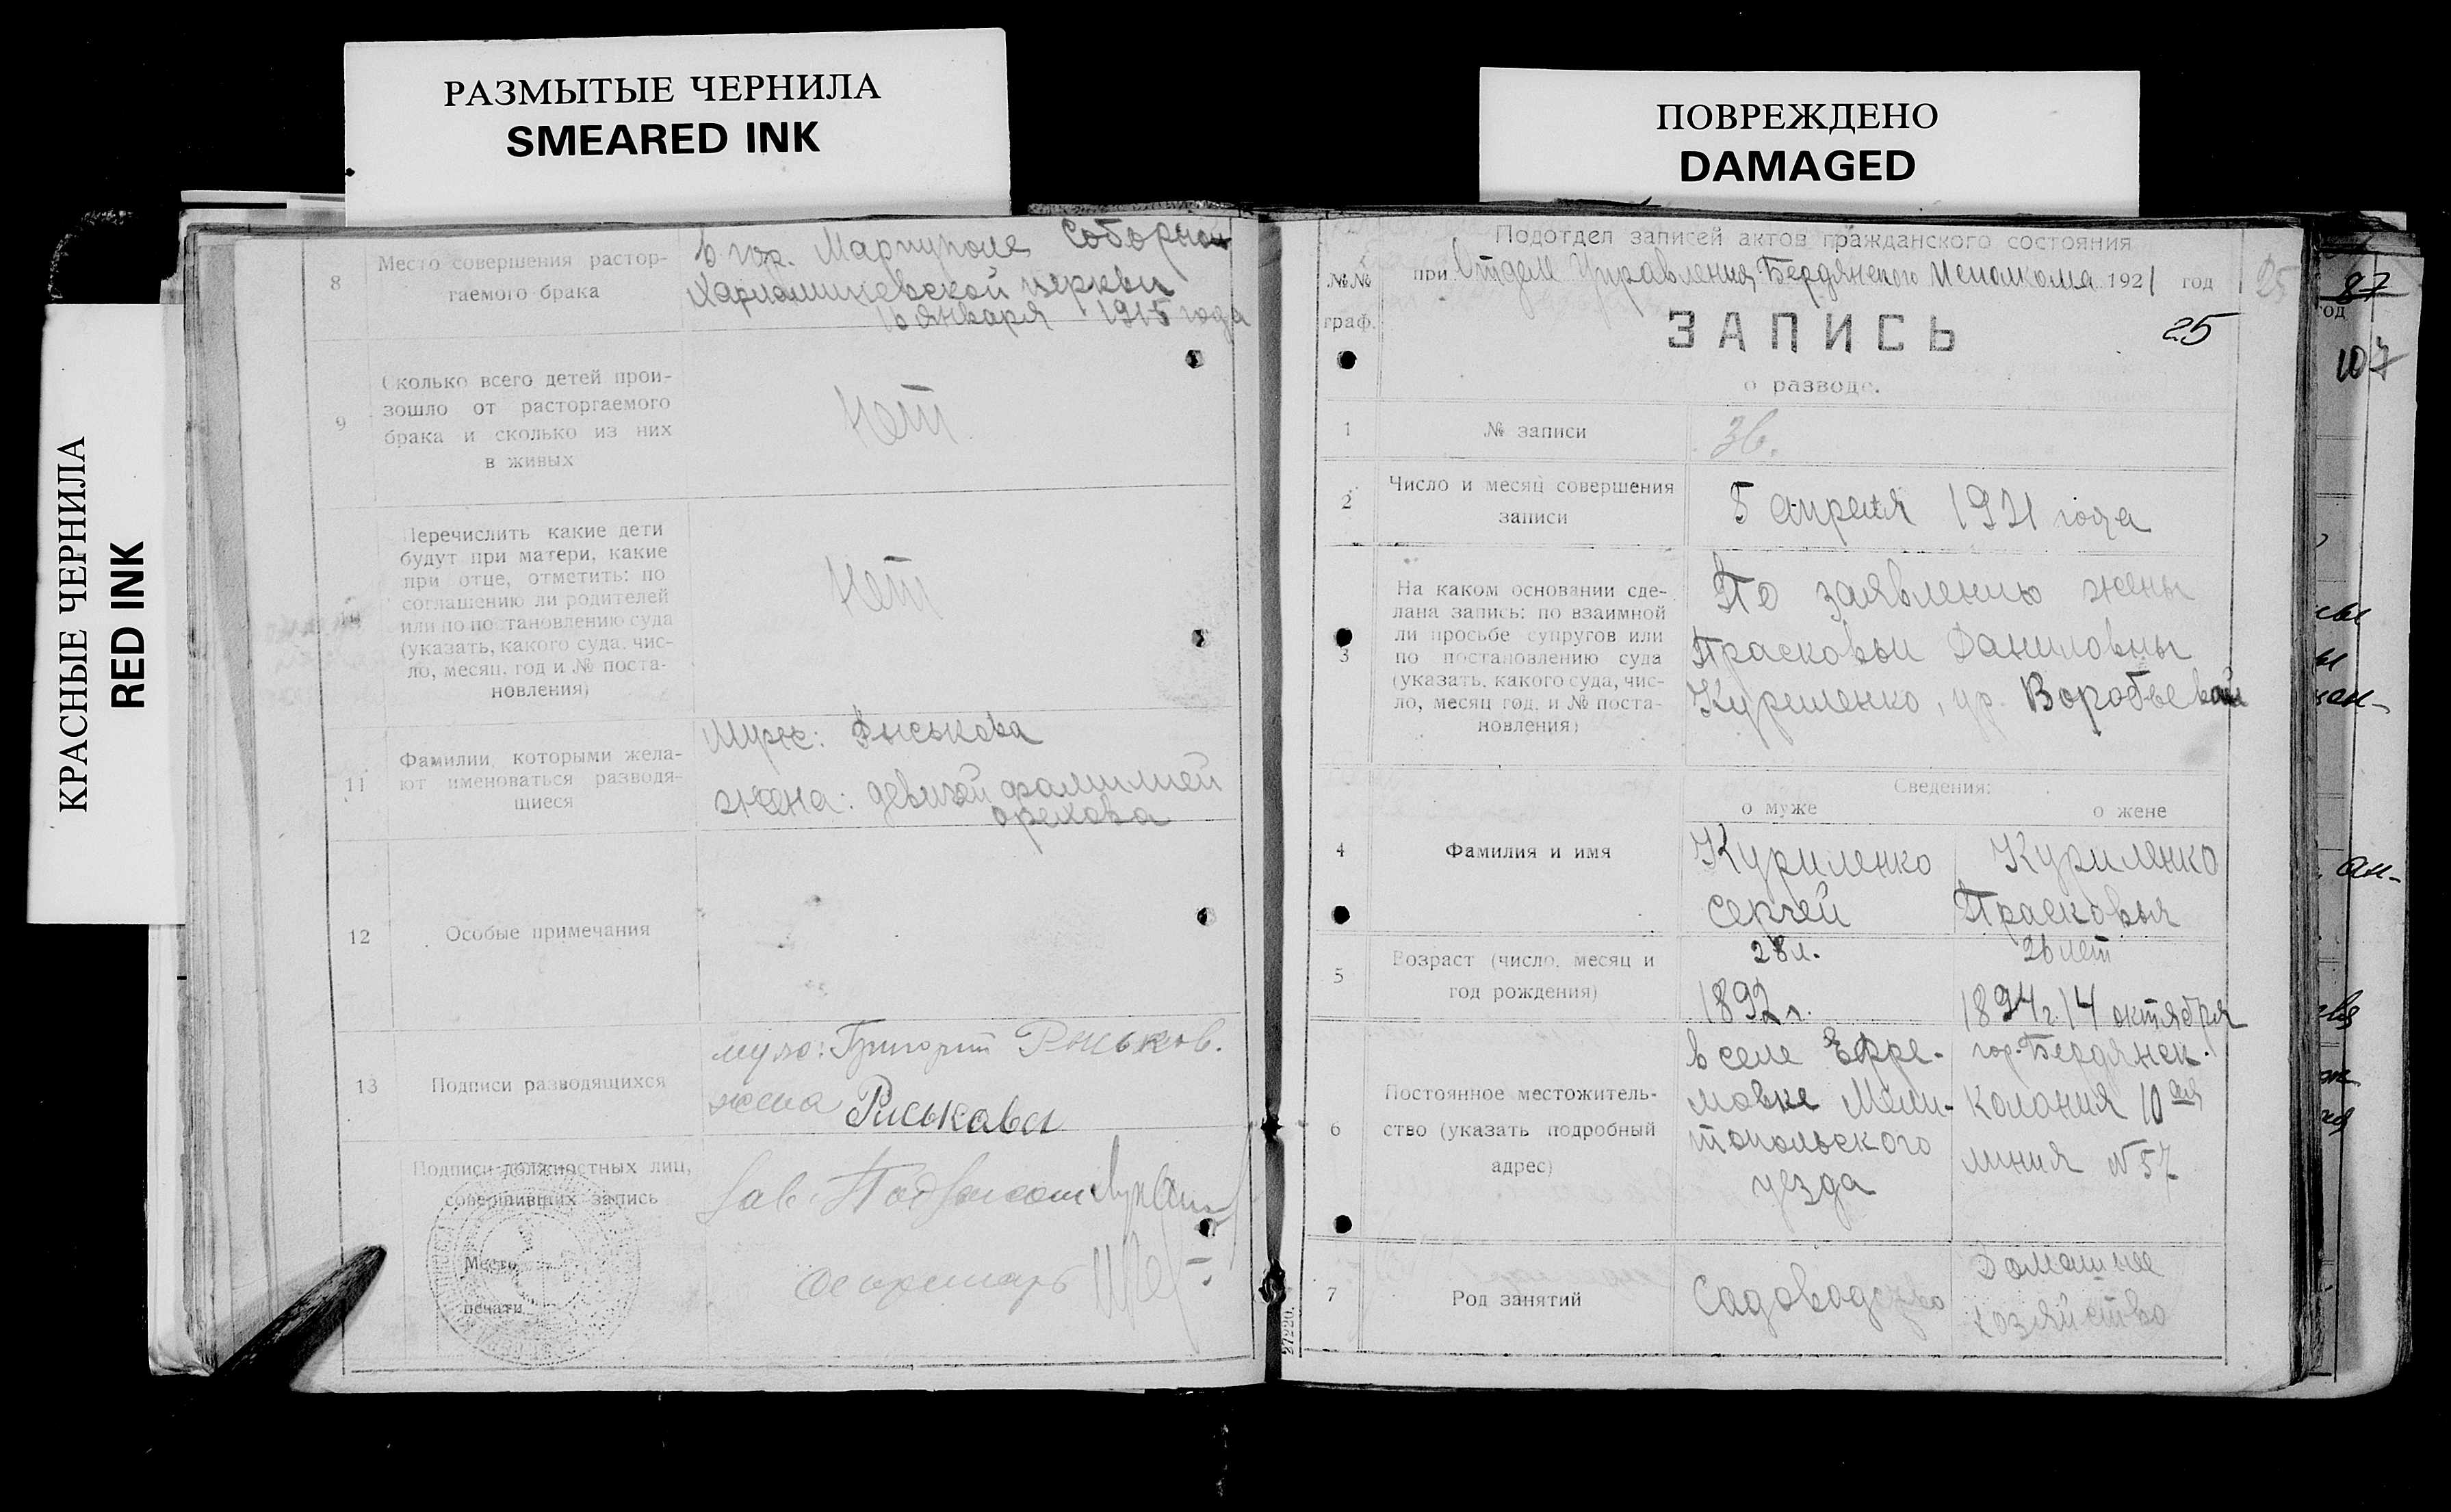 РАЗМЫТЫЕ ЧЕРНИЛА
SMEARED INK
ПОВРЕЖДЕНО
DAMAGED
КРАСНЫЕ ЧЕРНИЛА
RED INK
8
Место совершения растор-
гаемого брака
в гор. Мариуполе Соборной
Харлампиевской церкви
16 января 1915 года
9
Сколько всего детей прои-
зошло от расторгаемого
брака и сколько из них
в живых
Нет.
10
Перечислить какие дети
будут при матери, какие
при отце, отметить: по
соглашению ли родителей
или по постановлению суда
(указать, какого суда, чис-
ло, месяц, год и № поста-
новления)
Нет
11
Фамилии, которыми жела-
ют именоваться разводя-
щиеся
Муж: Рыськова
жена: девичей фамилией
Орехова
12
Особые примечания
13
Подписи разводящихся
муж: Григорий Рыськов.
жена Рыськова
Подписи должностных лиц,
совершивших запись
Место
печати
Зав. Подзагсом
Секретарь
№№
граф.
Подотдел записей актов гражданского состояния
при Отделе Управления Бердянского Исполкома 1921 год
25
ЗАПИСЬ
25
о разводе.
1
№ записи
36.
2
Число и месяц совершения
записи
5 апреля 1921 года
3
На каком основании сде-
лана запись: по взаимной
ли просьбе супругов или
по постановлению суда
(указать, какого суда, чис-
ло, месяц год, и № поста-
новления)
По заявлению жены
Прасковьи Даниловны
Куриленко, ур. Воробьевой
Сведения:
о муже
о жене
4
Фамилия и имя
Куриленко
Сергей
Куриленко
Прасковья
5
Возраст (число, месяц и
год рождения)
28 л.
1892 г.
26 лет
1894 г. 14 октября
6
Постоянное местожитель-
ство (указать подробный
адрес)
в селе Ефре-
мовке Мели-
топольского
уезда
гор. Бердянск.
колония 10 ая
линия № 57
7
Род занятий
Садоводство
Домашнее
хозяйство
27220.
87
год
107
ан-